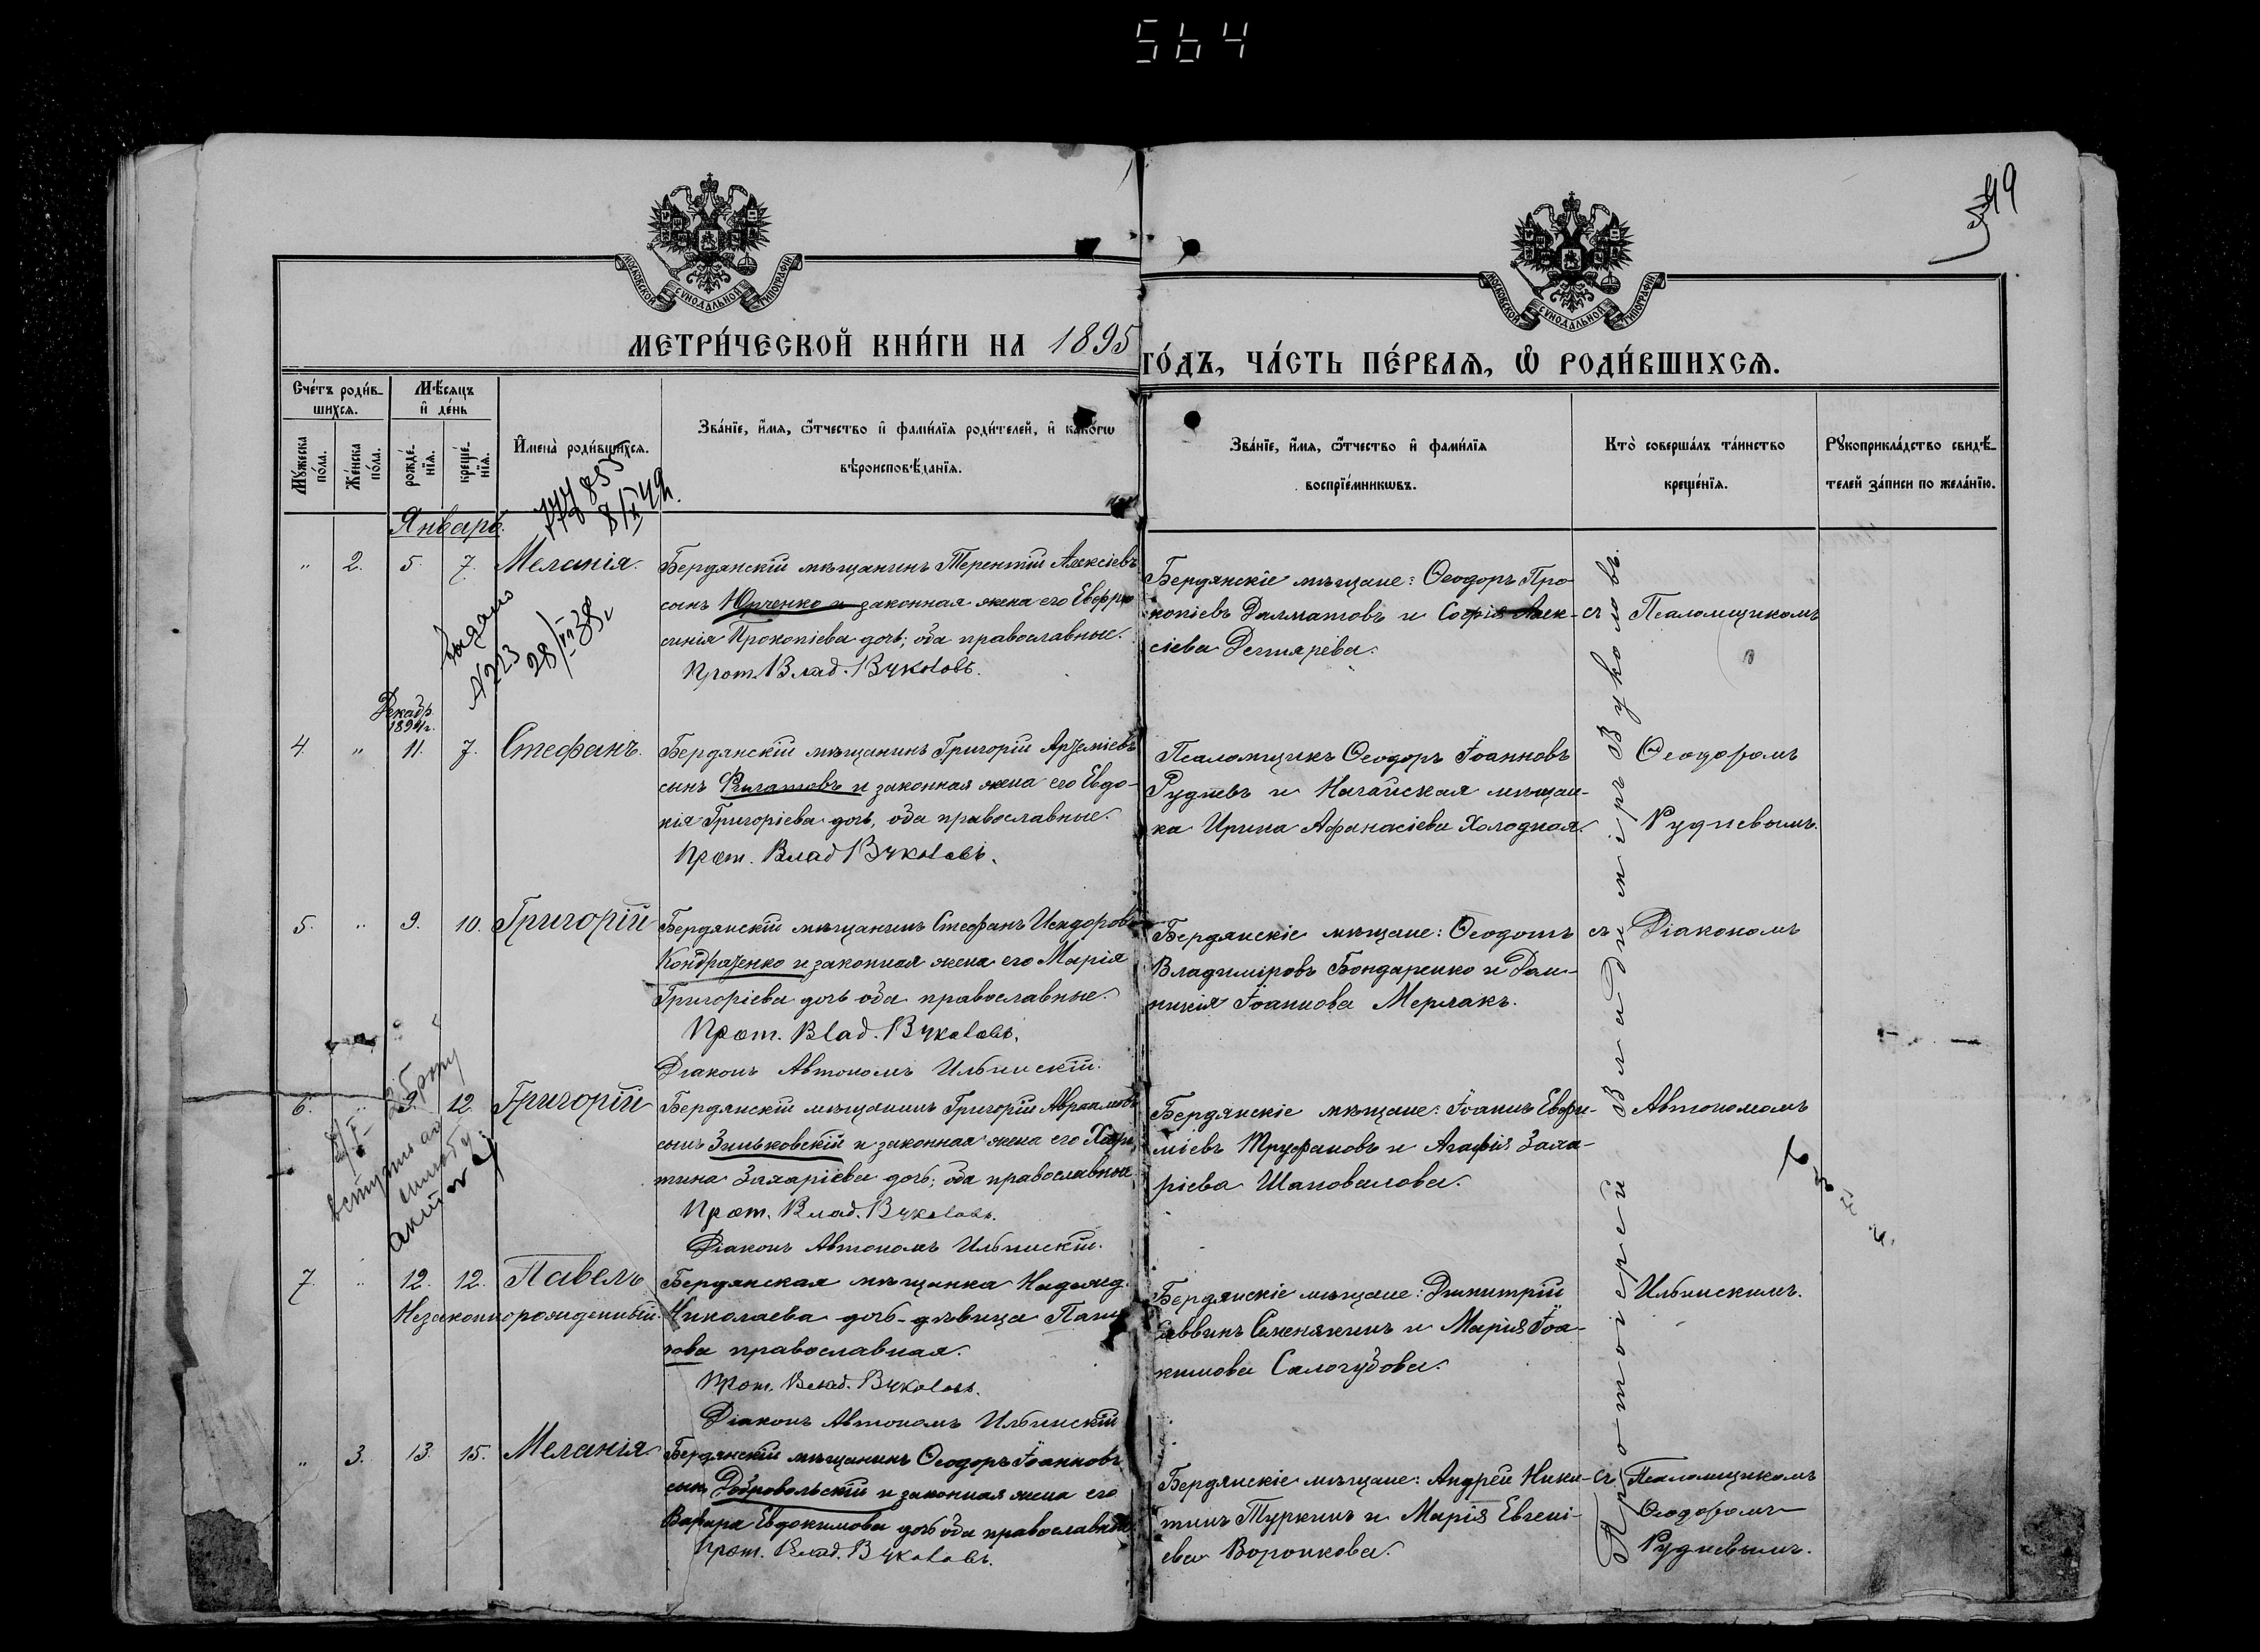 564
49
МОСКОВСКОЙ СѴНОДАЛЬНОЙ ТИПОГРАФІИ
МОСКОВСКОЙ СѴНОДАЛЬНОЙ ТИПОГРАФІИ
МЕТРИ́ЧЕСКОЙ КНИ́ГИ НА 1895
ГО́ДЪ, ЧА́СТЬ ПЕ́РВАЯ, Ѡ҆ РОДИ́ВШИХСЯ.
Сче́тъ роди́в-
шихся.
Мѣ́сяцъ
и҆ де́нь
Мꙋ́жеска по́ла.
Же́нска по́ла.
рожде́-
нїя.
креще́-
нїя.
И҆мена̀ роди́вшихся.
Зва́нїе, и҆́мя, ѻ҆́тчество и҆ фами́лїя роди́телей, и҆ како́гѡ
вѣроисповѣ́данїя.
Зва́нїе, и҆́мя, ѻ҆́тчество и҆ фами́лїя
воспрїе́мникѡвъ.
Кто̀ соверша́лъ та́инство
креще́нїя.
Рꙋкоприкла́дство свидѣ́-
телей за́писи по жела́нїю.
Январь.
" 2. 5. 7. Меланія.
Бердянскій мѣщанинъ Терентій Алексіевъ
сынъ Юрченко и законная жена его Евфро
синія Прокопіева дочь; оба православные.
Прот. Влад. Вуколовъ.
Бердянскіе мѣщане: Ѳеодоръ Про-
копіевъ Далматовъ и Софія Алек-
сіева Дегтярева.
съ Псаломщикомъ
Выдано
№ 223
28/VII 38 г
Декабр.
1894 г.
4. " 11. 7. Стефанъ.
Бердянскій мѣщанинъ Григорій Артеміевъ
сынъ и законная жена его Евдо-
кія Григоріева дочь, оба православные.
Прот. Влад Вуколовъ.
Псаломщикъ Ѳеодоръ Іоанновъ
Рудневъ и Ногайская мѣщан-
ка Ирина Аѳанасіева Холодная.
Ѳеодоромъ
Рудневымъ.
5. " 9. 10. Григорій
Бердянскій мѣщанинъ Стефанъ Исидоровъ
Кондратенко и законная жена его Марія
Григоріева дочь оба православные.
Прот. Влад. Вуколовъ.
Діаконъ Автономъ Ильинскій.
Бердянскіе мѣщане: Ѳеодотъ
Владиміровъ Бондаренко и Дом-
никія Іоаннова Мерлакъ.
съ Діакономъ
6. " 9. 12. Григорій
Бердянскій мѣщанинъ Григорій Авраамовъ
сынъ Зиньковскій и законная жена его Хари
тина Захаріева дочь; оба православные
Прот. Влад. Вуколовъ.
Діаконъ Автономъ Ильинскій.
Бердянскіе мѣщане: Іоаннъ Евфи-
міевъ Труфановъ и Агафія Заха-
ріева Шаповалова.
Автономомъ
7. " 12. 12. Павелъ
Незаконнорожденный.
Бердянская мѣщанка Надежд.
Николаева дочь-дѣвица Пани
кова православная.
Прот. Влад. Вуколовъ.
Діаконъ Автономъ Ильинскій
Бердянскіе мѣщане: Димитрій
Саввинъ Семенякинъ и Марія Іоа-
кимова Салогубова.
Ильинскимъ.
" 3. 13. 15. Меланія.
Бердянскій мѣщанинъ Ѳеодоръ Іоанновъ
сынъ Добровольскій и законная жена его
Варвара Евдокимова дочь оба православные
Прот. Влад. Вуколовъ.
Бердянскіе мѣщане: Андрей Ники-
тинъ Туркинъ и Марія Евгені-
ева Воронкова.
съ Псаломщикомъ
Ѳеодоромъ
Рудневымъ.
Протоіерей Владиміръ Вуколовъ.